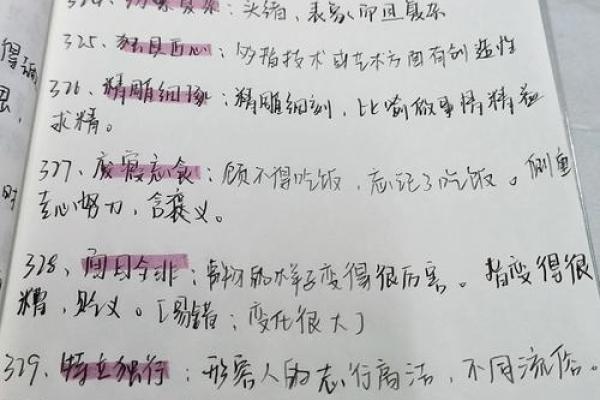 324、纷繁复杂：头绪、表象多而且复杂
325、独具匠心：多指技术或艺术方面有创造性
326、精雕细琢：精雕细刻，比喻做事情精益
求精。
327、废寝忘食：顾不得吃饭，忘记了吃饭。侧重
专心努力，含褒义。
328、面目全非：事物的样子变得很厉害。指变得很
糟，贬义。[易错：变化很大]
329、特立独行：形容人的志行高洁，不同流俗。